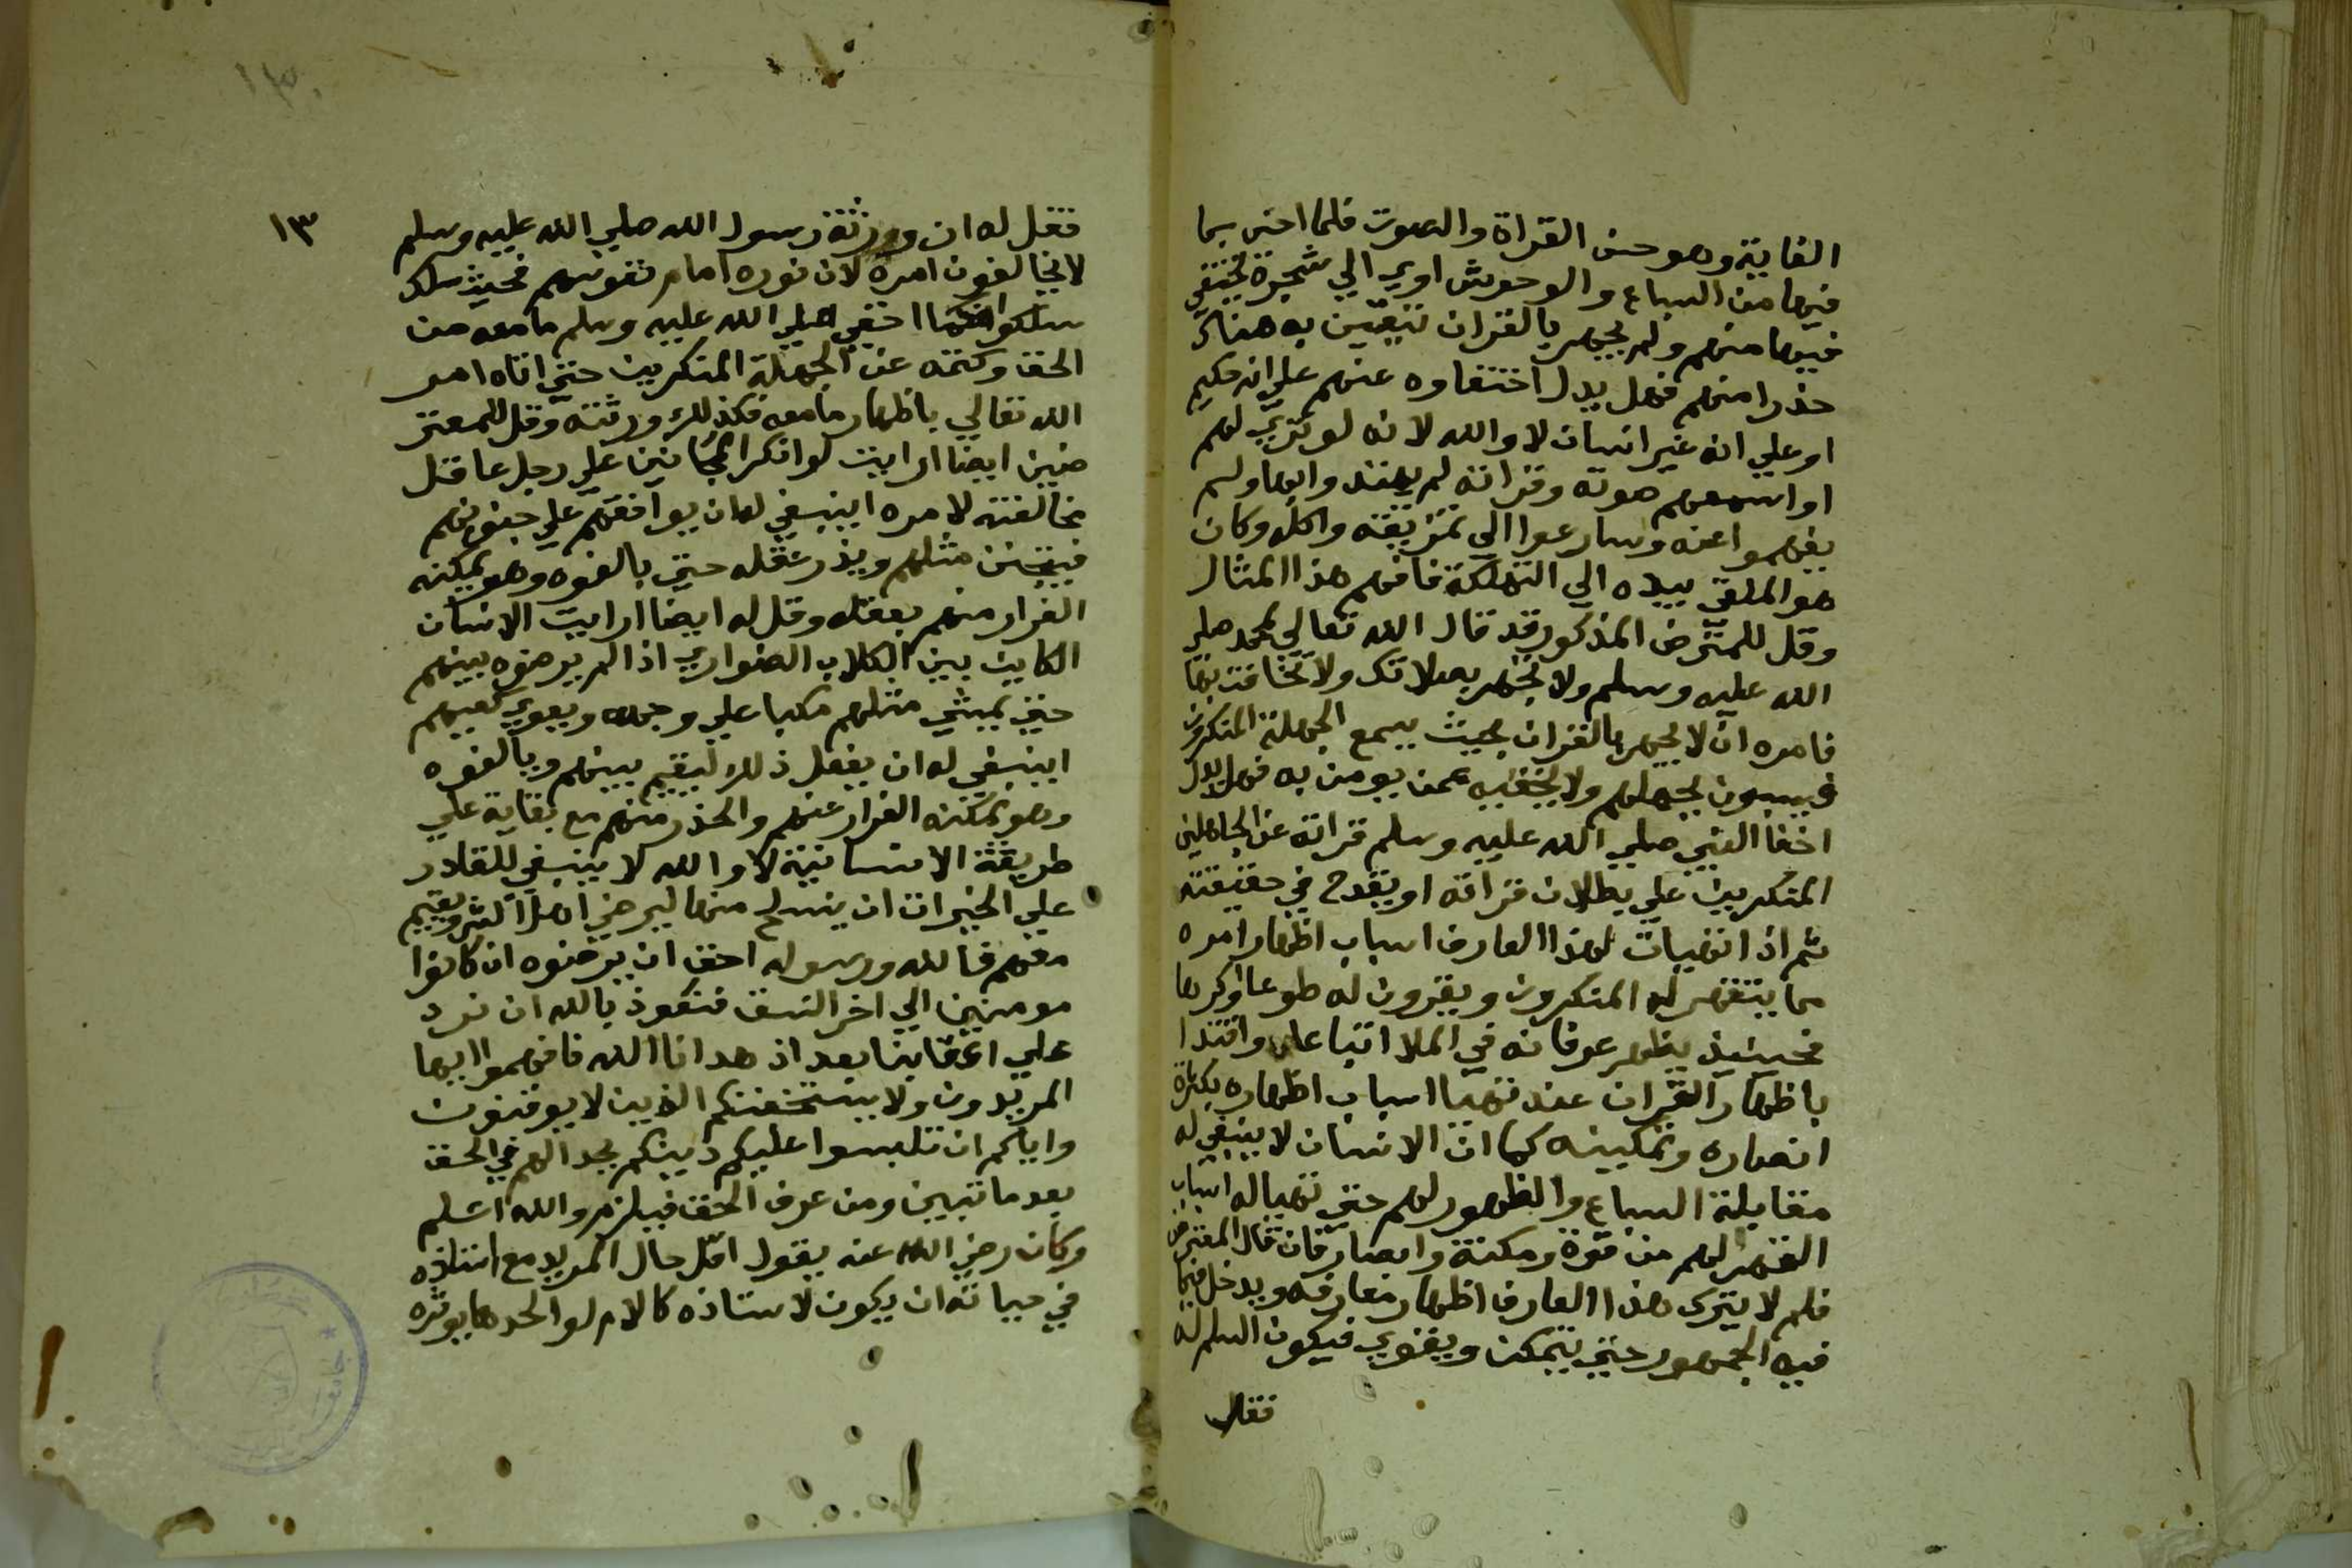 الغابة وهو حسن القراة والصوت فلما احس بما
فيها من السباع والوحوش اوي الي شجرة يختفي
فيها منهم ولم يجهر بالقران يتعين به هناك
حذرا منهم فهل يدل اختفاوه عنهم علي انه حكيم
او علي انه غير انسان لا والله لانه لو تري لهم
او اسمعهم صوته وقراته لم يهتدوا بها ولم
يفهموا عنه وسارعوا الي تمزيقه واكله وكان
هو الملقي بيده الي التهلكة فافهم هذا المثال
وقل للمعترض المذكور قد قال الله تعالي لمحمد صلي
الله عليه وسلم ولا تجهر بصلاتك ولا تخافت بها
فامره ان لا يجهر بالقران بحيث يسمع الجهلة المنكرون
فيسبون بجهلهم ولا يخفيه عمن يومن به فهل يدل
اخفا النبي صلي الله عليه وسلم قراته عن الجاهلين
المنكرين علي بطلان قراته او يقدح في حقيقته
ثم اذا تهيات لهذا العارف اسباب اظهار امره
مما ينقهر له المنكرون ويقرون له طوعا او كرها
فحينيذ يظهر عرفانه في الملا اتباعا واقتدا
باظهار القران عند تهيا اسباب اظهاره بكثرة
انصاره وتمكينه كما ان الانسان لا ينبغي له
مقابلة السباع والظهور لهم حتي تهيا له اسباب
القهر لهم من قوة ومكنة وانصار فان قال المعترض
فلم لا يترك هذا العارف اظهار معارفه ويدخل فيما
فيه الجمهور حتي يتمكن ويقوي فيكون اسلم له
فقل
١٣
فقل له ان ورثة رسول الله صلي الله عليه وسلم
لا يخالفون امره لان نوره امام نفوسهم فحيث سلك
سلكوا فكما اخفي صلي الله عليه وسلم ما معه من
الحق وكتمه عن الجهلة المنكرين حتي اتاه امر
الله تعالي باظهار ما معه فكذلك ورثته وقل للمعتر
ضين ايضا ارايت لو انكر المجانين علي رجل عاقل
مخالفته لامره اينبغي له ان يوافقهم علي جنونهم
فيتجنن مثلهم ويذر عقله حتي يالفوه وهو يمكنه
الفرار منهم بعقله وقل له ايضا ارايت الانسان
الكاين بين الكلاب الضواري اذا لم يرضوه بينهم
حتي يمشي مثلهم مكبا علي وجهه ويعوي كعيهم
اينبغي له ان يفعل ذلك ليقيم بينهم ويالفوه
وهو تمكنه الفرار عنهم والحذر منهم مع بقايه علي
طريقة الانسانية لا والله لا ينبغي للقادر
علي الخيرات ان ينسلخ منها ليرضي اهل الشر ويقيم
معهم فالله ورسوله احق ان يرضوه ان كانوا
مومنين الي اخر النسق فنعوذ بالله ان نرد
علي اعقابنا بعد اذ هدانا الله فافهموا ايها
المريدون ولا يستخفنكم الذين لا يوقنون
واياكم ان تلبسوا عليكم دينكم بجدالهم في الحق
بعد ما تبين ومن عرف الحق فيلزم والله اعلم
وكان رضي الله عنه يقول اقل حال المريد مع استاذه
في حياته ان يكون لاستاذه كالام لواحدها يوثره